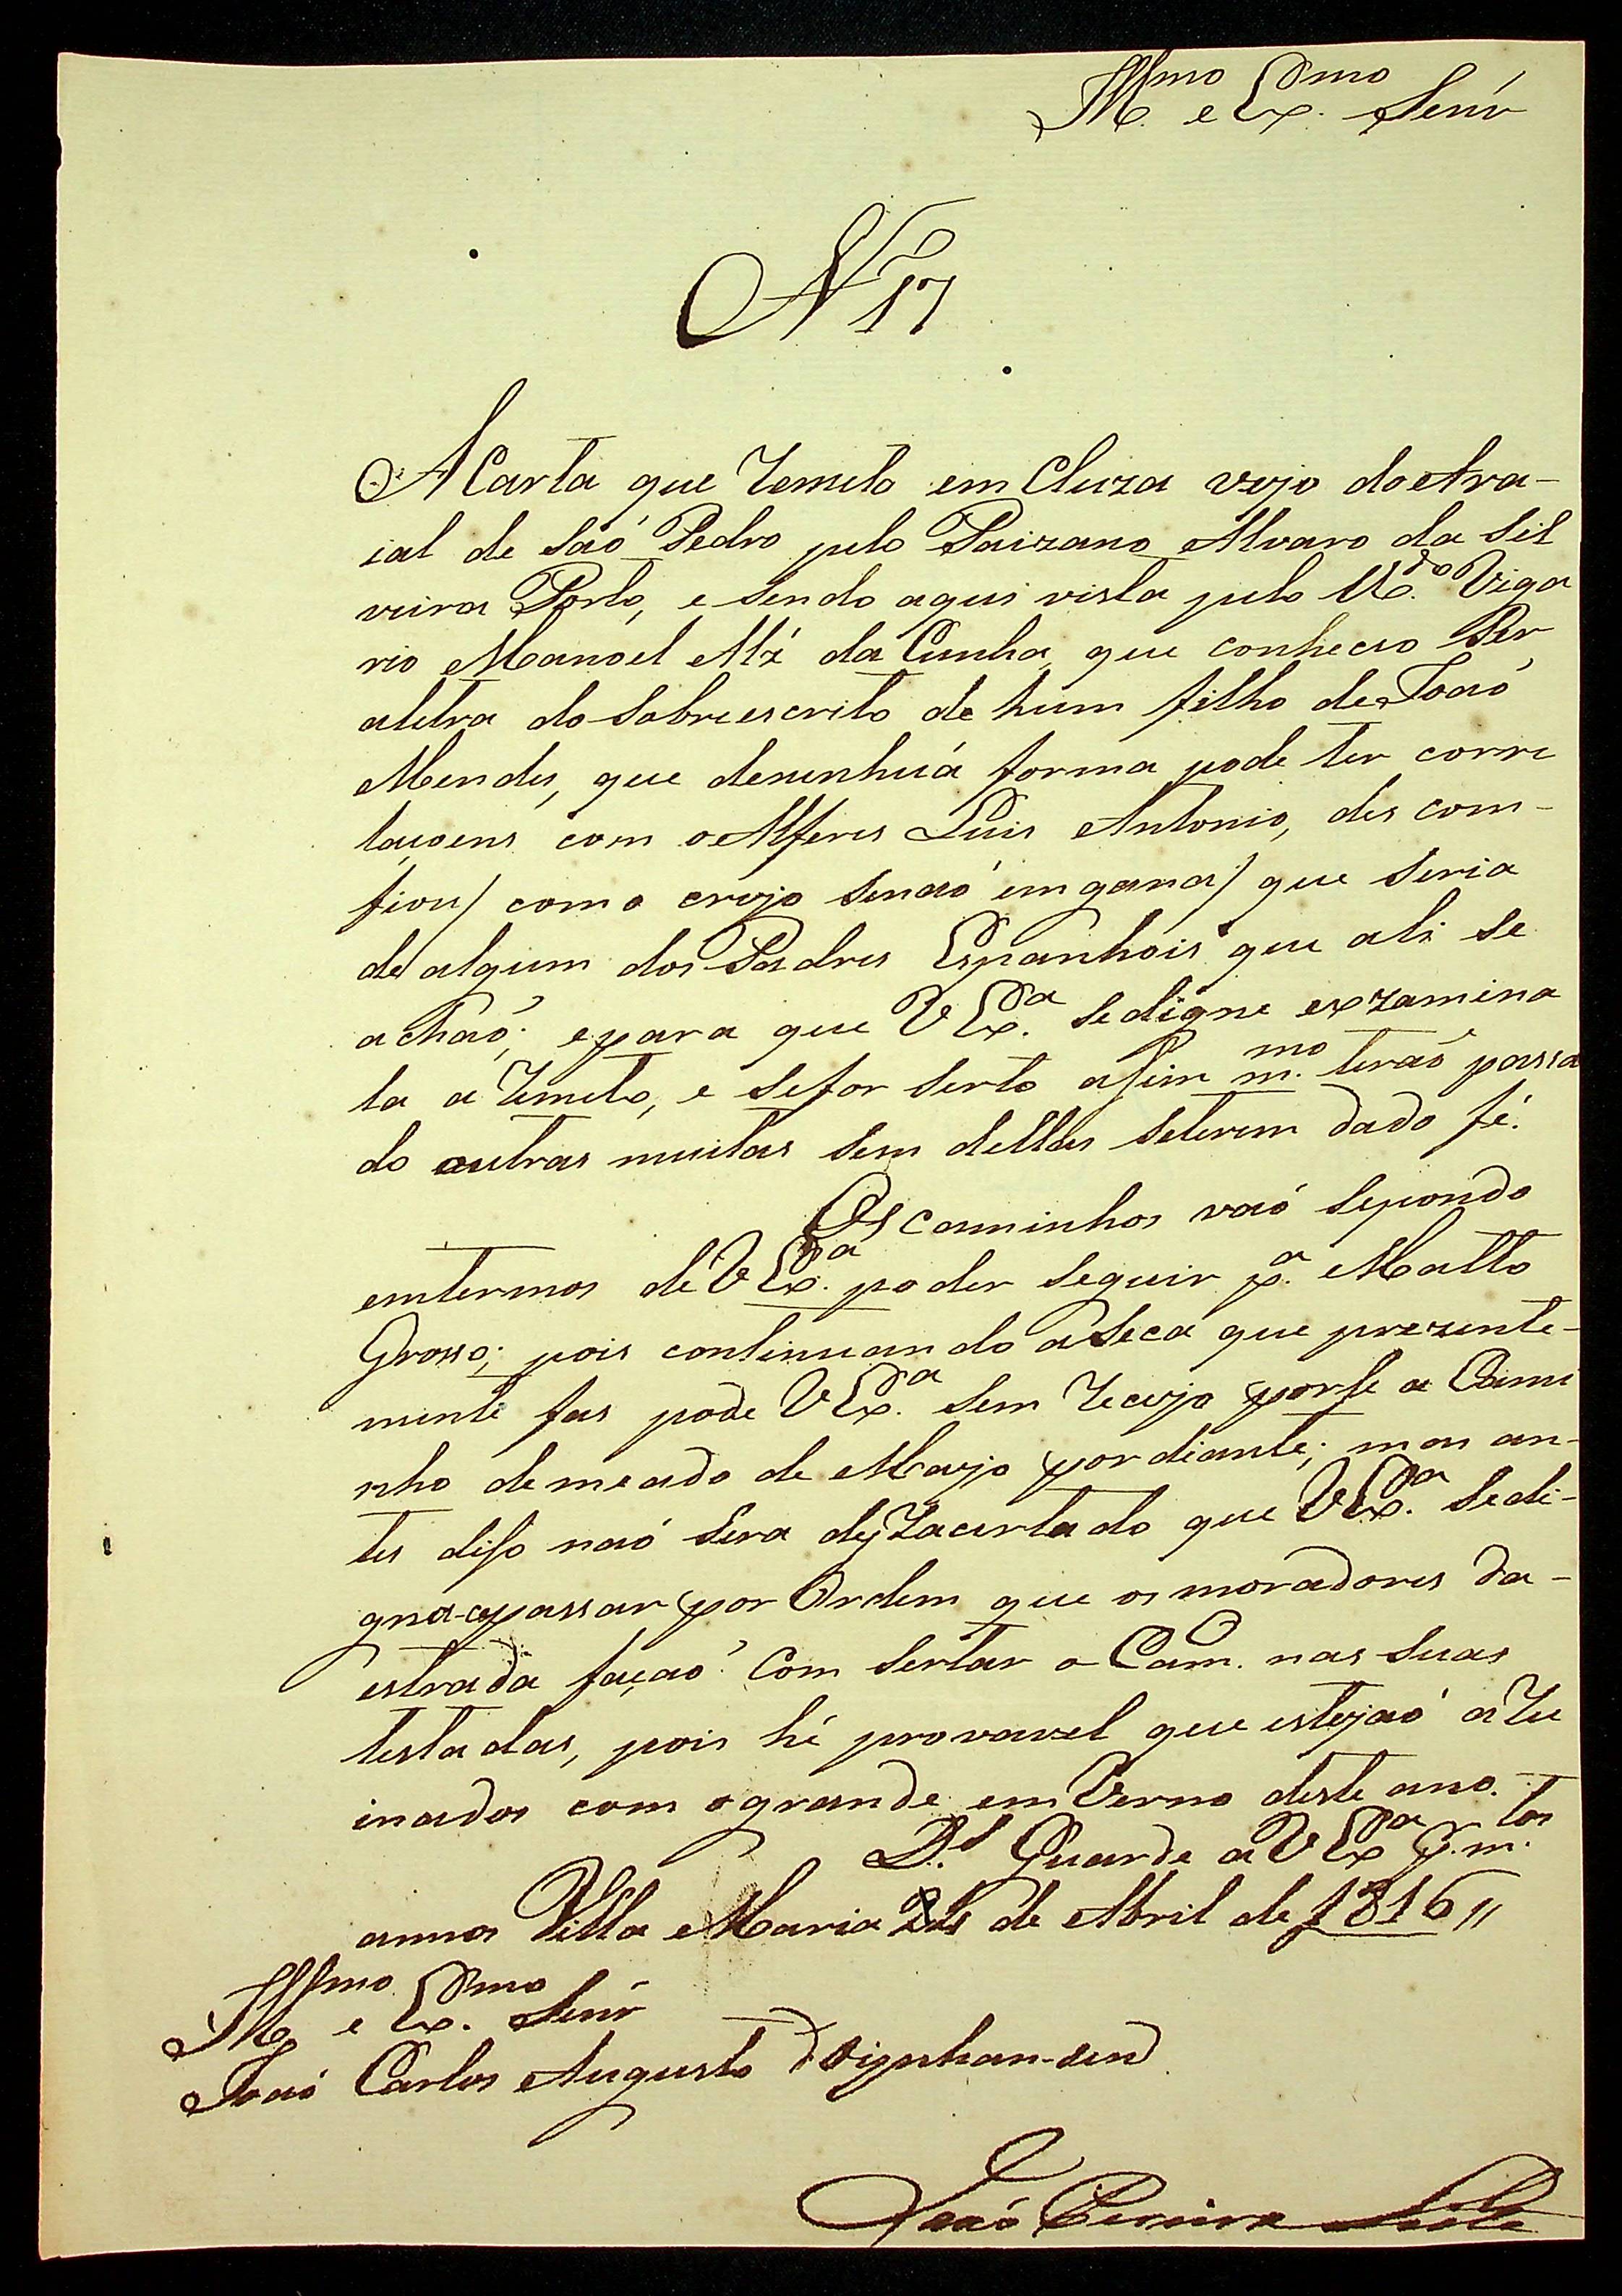 Illmo e Exmo Senr
No 17
A Carta que Remeto em Cluza vejo do Ara-
ial de Saó Pedro pelo Paizano Alvaro da Sil
veira Porto, e sendo aqui vista pelo Rdo. Viga
rio Manoel Alz da Cunha, que conheceo Ser
aletra do sobreescrito de hum filho de Joaó
Mendes, que denenhuá forma pode ter corre
laçoens com o Alferes Luis Antonio, des com-
fiou / como creyo senaó emgana / que seria
de algum dos Padres Espanhois que ali se
achaó; epara que V Exa. sedigne exzamina
la a Remeto, e sefor serto asim mmo. teraó passa
do outras muitas sem dellas seterem dado fé.
Os caminhos vaó sepondo
emtermos de V Exa. poder seguir pa. Matto
Grosso; pois continuando aseca que prezente-
mente fas pode V Exa. sem Receyo porse a Cami
nho demeado de Mayo por diante; mas an-
tes diso naó sera deszacertado que V Exa. sedi-
gne apassar por Ordem que os moradores da-
estrada façaó com sertar o Camo. nas suas
testadas, pois hé provavel que estejaó aRu
inados com ogrande emVerno deste ano.
Ds. Guarde a V Exa. por mtos.
annos Villa Maria de Abril de 1816 //
Illmo e Exmo. Senr
Joaó Carlos Augusto
Joaó Pereira Leite